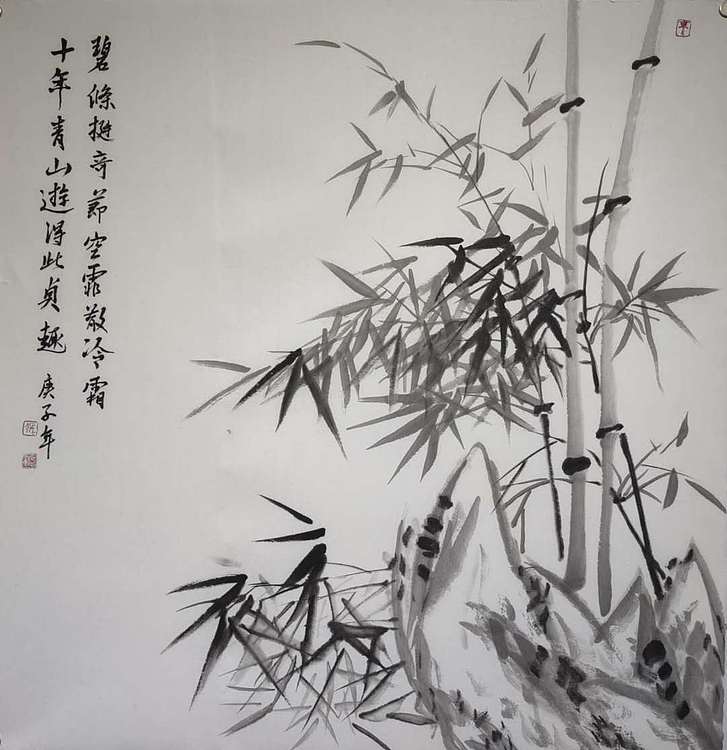 碧條挺奇節空霏散冷霜
十年青山遊得此貞趣 庚子年